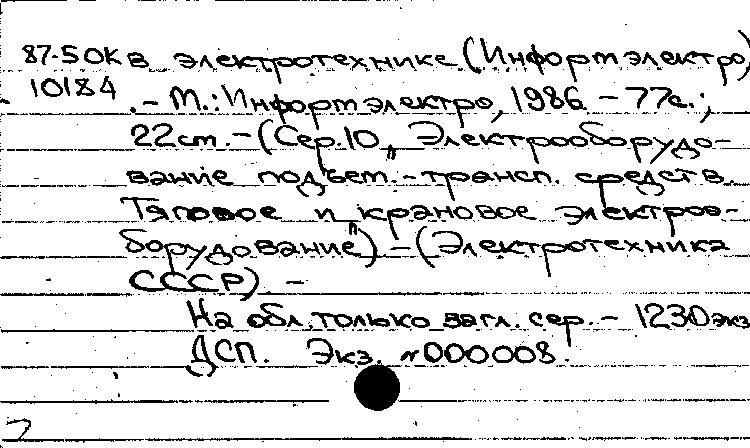 87-5 ОК в электротехнике (Информэлектро)
10184 .- М.: Информэлектро, 1986. - 77с.;
22см. - (Сер.10 „Электрооборудо-
вание подъем.-трансп. средств.
Тяговое и крановое электрооо-
борудование") - (Электротехника
СССР). -
На обл. только загл. сер. - 1230экз
ДСП. Экз. №000008.